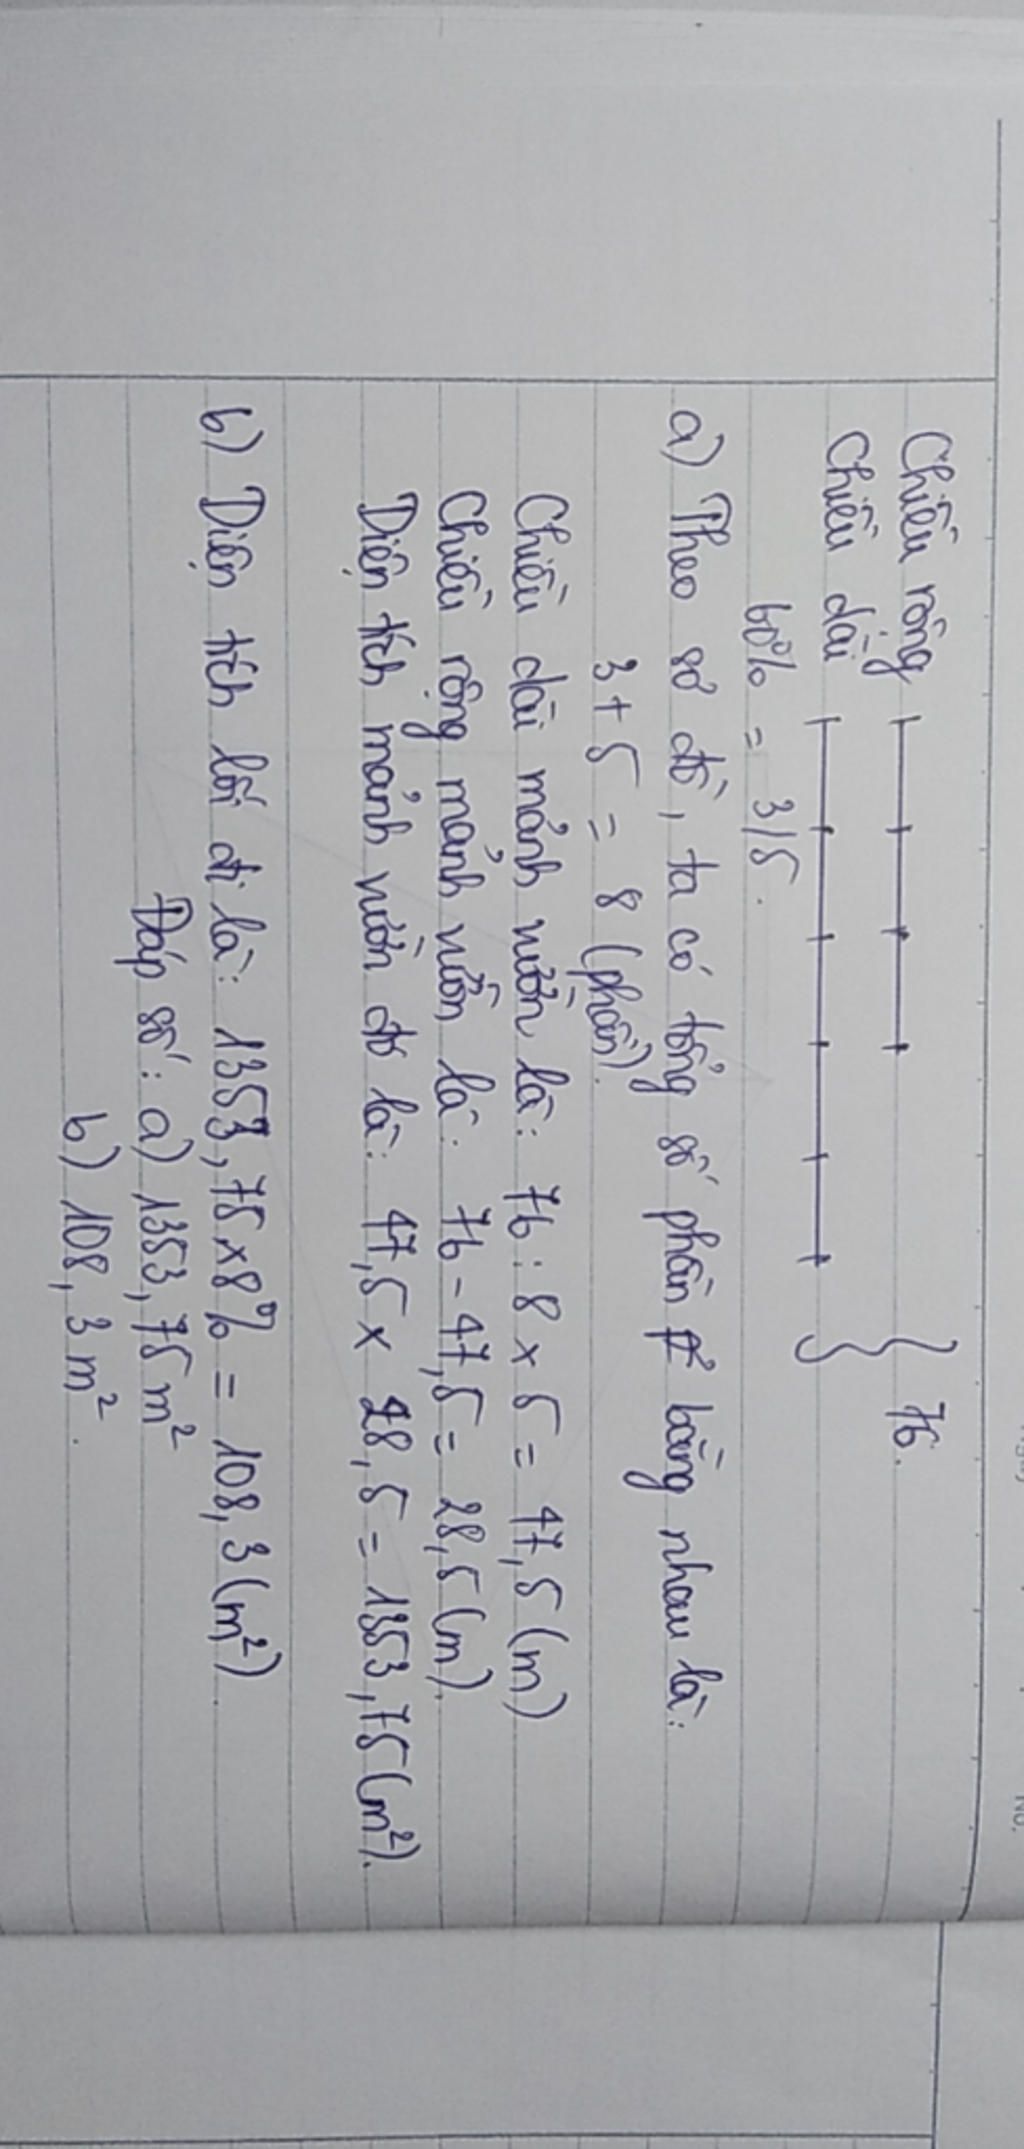 Chiều rộng
76.
Chiều dài
60% = 3/5.
a) Theo sơ đồ, ta có tổng số phần bằng nhau là:
3 + 5 = 8 (phần).
Chiều dài mảnh vườn là: 76 : 8 x 5 = 47,5 (m)
Chiều rộng mảnh vườn là: 76 - 47,5 = 28,5 (m).
Diện tích mảnh vườn đó là: 47,5 x 28,5 = 1353,75 (m²).
b) Diện tích lối đi là: 1353,75 x 8% = 108,3 (m²).
Đáp số: a) 1353,75 m²
b) 108,3 m².
No.